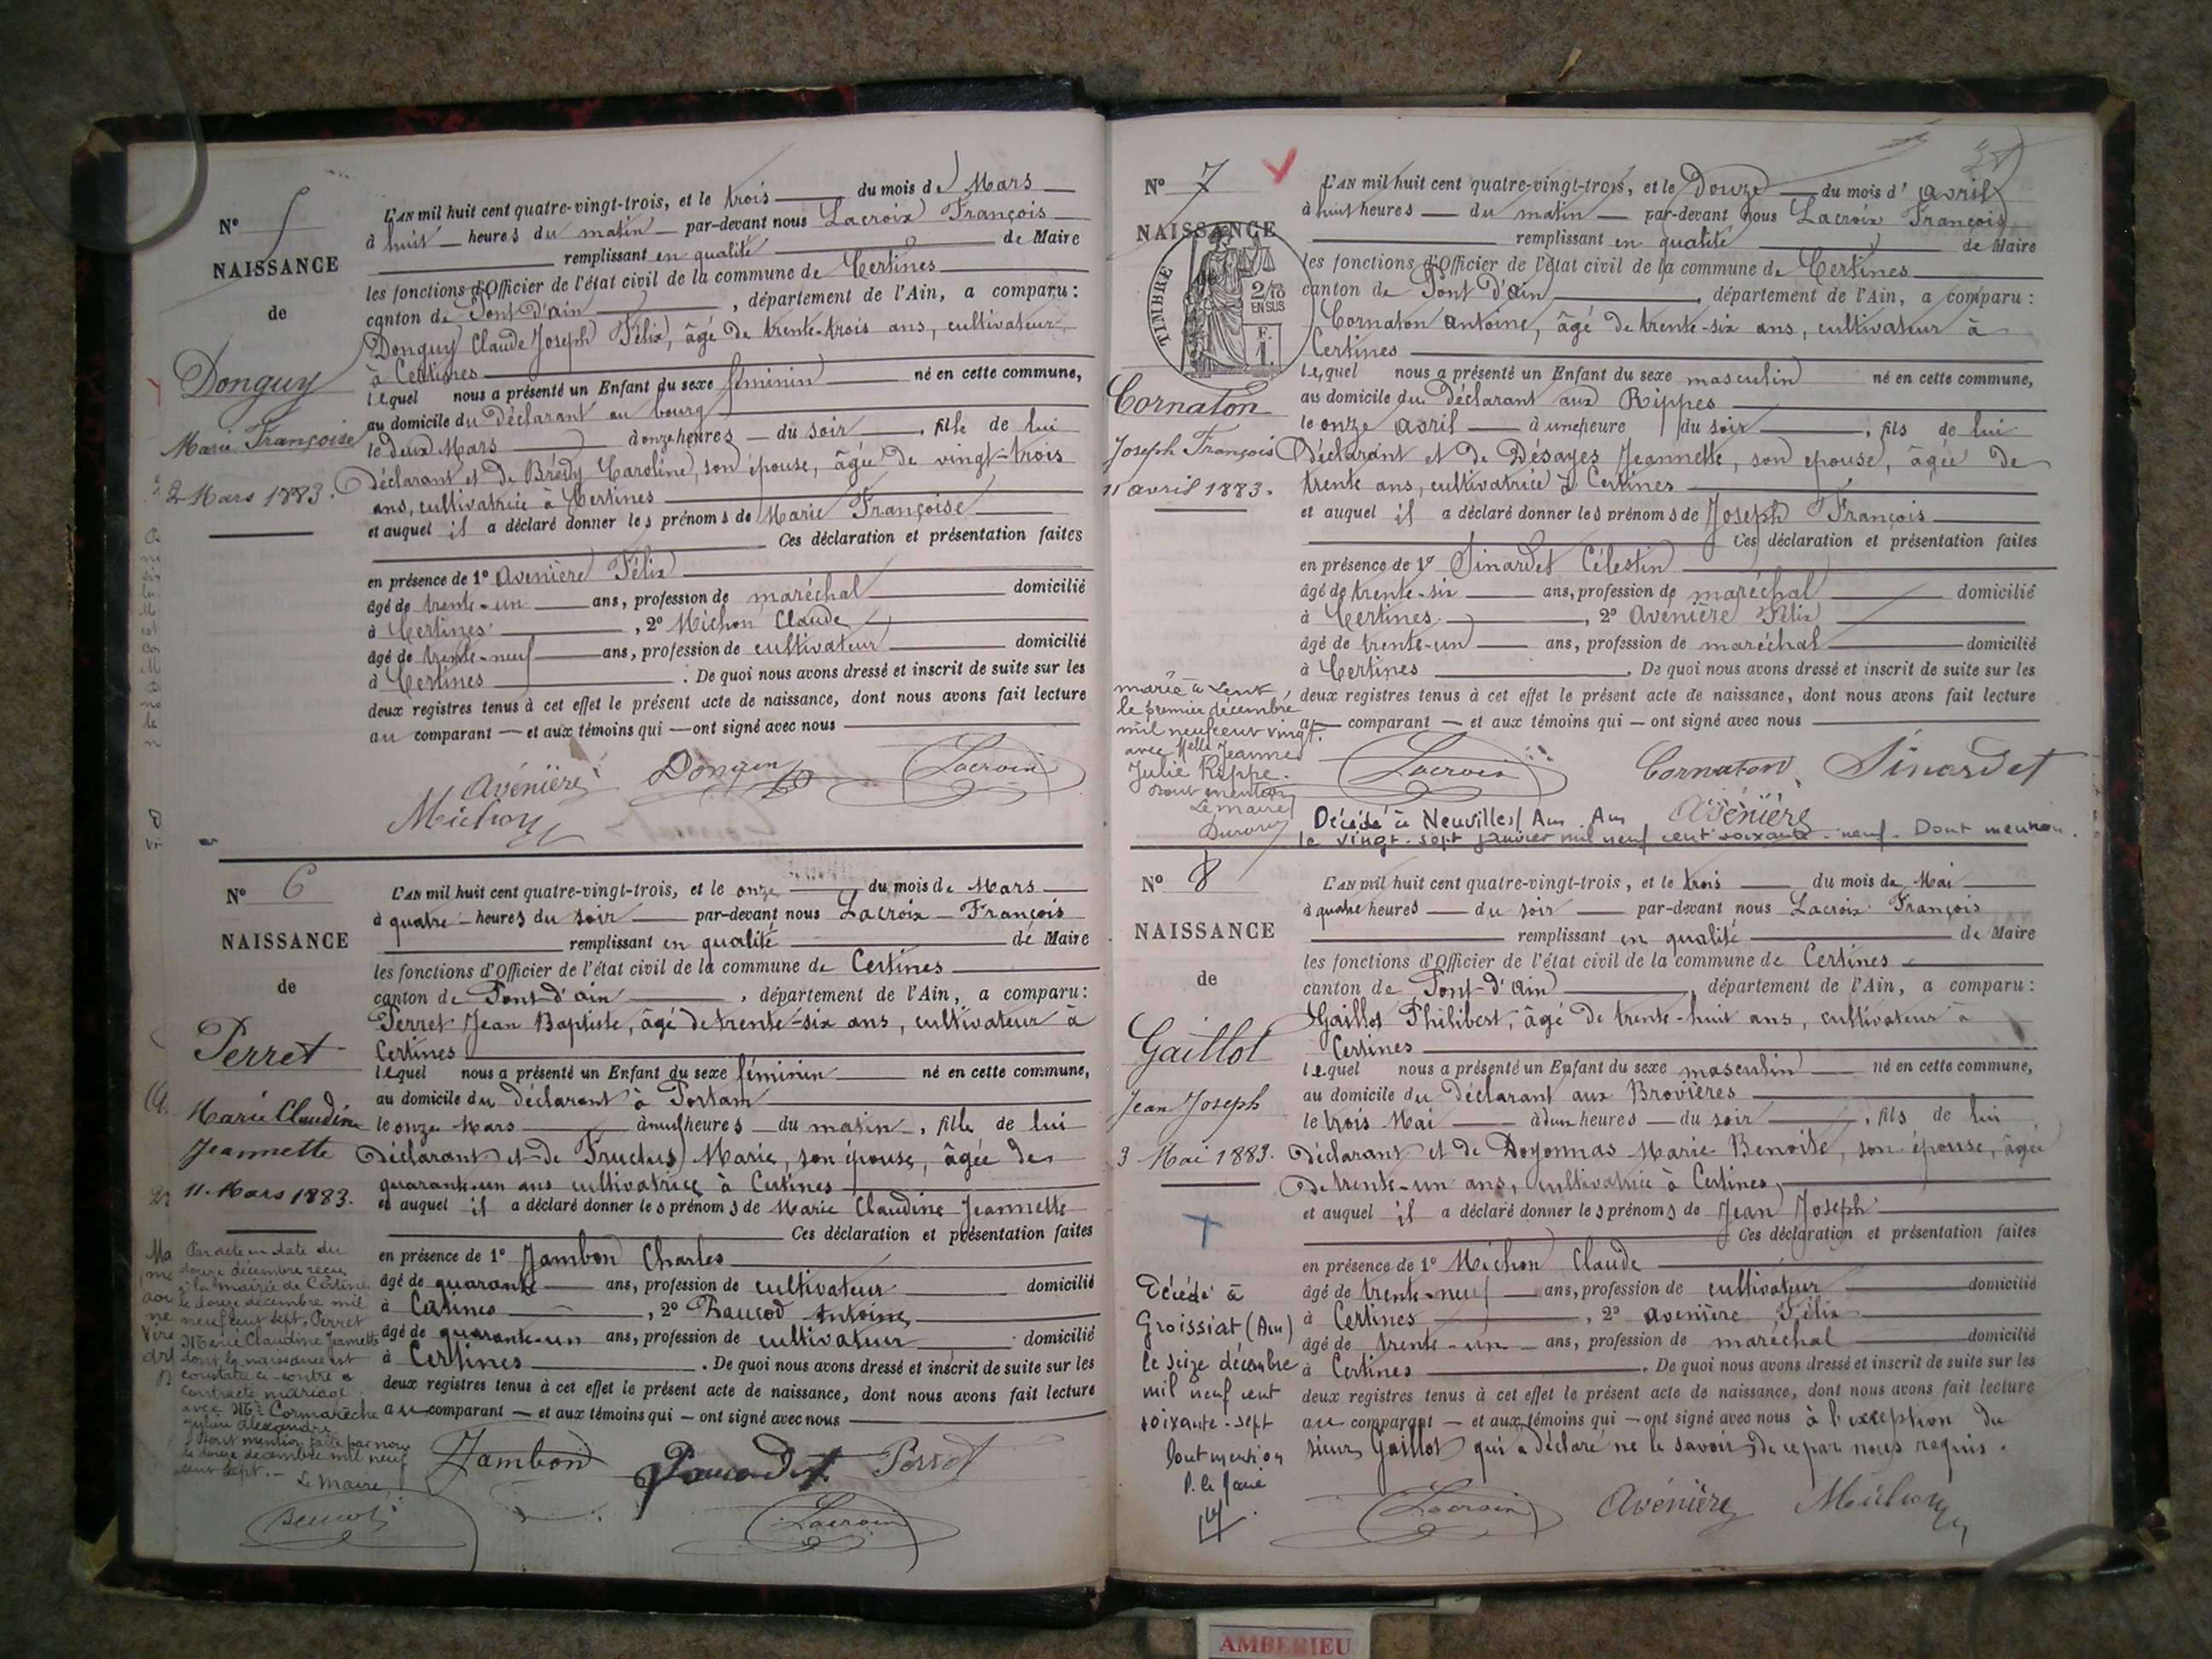 N° 5
NAISSANCE
de
Donguy
Marie Françoise
2 Mars 1883.
L'AN mil huit cent quatre-vingt-trois, et le trois du mois de Mars
à huit heures du matin par-devant nous Lacroix François
remplissant en qualité de Maire
les fonctions d'Officier de l'état civil de la commune de Certines
canton de Pont d'ain, département de l'Ain, a comparu :
Donguy Claude Joseph Félix, âgé de trente-trois ans, cultivateur
à Certines
lequel nous a présenté un Enfant du sexe féminin né en cette commune,
au domicile du déclarant au bourg
le deux Mars à onze heures du soir, fille de lui
Déclarant et de Caroline, son épouse, âgée de vingt-trois
ans, cultivatrice à Certines
et auquel il a déclaré donner les prénoms de Marie Françoise
Ces déclaration et présentation faites
en présence de 1° Avenière Félix
âgé de trente-un ans, profession de maréchal domicilié
à Certines, 2° Michon Claude
âgé de trente-neuf ans, profession de cultivateur domicilié
à Certines. De quoi nous avons dressé et inscrit de suite sur les
deux registres tenus à cet effet le présent acte de naissance, dont nous avons fait lecture
au comparant et aux témoins qui ont signé avec nous
Avénière Donguy Lacroix
Michon
N° 6
NAISSANCE
de
Perret
Marie Claudine
Jeannette
11. Mars 1883.
L'AN mil huit cent quatre-vingt-trois, et le onze du mois de Mars
à quatre heures du soir par-devant nous Lacroix François
remplissant en qualité de Maire
les fonctions d'Officier de l'état civil de la commune de Certines
canton de Pont-d'ain, département de l'Ain, a comparu :
Perret Jean Baptiste, âgé de trente-six ans, cultivateur à
Certines
lequel nous a présenté un Enfant du sexe féminin né en cette commune,
au domicile du déclarant à
le onze Mars à neuf heures du matin, fille de lui
Déclarant et de Fructus Marie, son épouse, âgée de
quarante-un ans cultivatrice à Certines
et auquel il a déclaré donner les prénoms de Marie Claudine Jeannette
Ces déclaration et présentation faites
en présence de 1° Jambon Charles
âgé de quarante ans, profession de cultivateur domicilié
à Certines, 2° Antoine
âgé de quarante-un ans, profession de cultivateur domicilié
à Certines. De quoi nous avons dressé et inscrit de suite sur les
deux registres tenus à cet effet le présent acte de naissance, dont nous avons fait lecture
au comparant et aux témoins qui ont signé avec nous
Par acte en date du
douze décembre reçu
à la mairie de Certines
le douze décembre mil
neuf cent sept, Perret
Marie Claudine Jeannette
dont la naissance est
constatée ci-contre a
contracté mariage
avec Mr Cormarèche
Julien Alexandre.
Dont mention faite par nous
le douze décembre mil neuf
cent sept.
Le Maire,
Jambon Perret
Lacroix
N° 7
NAISSANCE
TIMBRE
2/10
EN SUS
F.
1.
Cornaton
Joseph François
11 avril 1883.
L'AN mil huit cent quatre-vingt-trois, et le Douze du mois d'avril
à huit heures du matin par-devant nous Lacroix François
remplissant en qualité de Maire
les fonctions d'Officier de l'état civil de la commune de Certines
canton de Pont d'ain, département de l'Ain, a comparu :
Cornaton Antoine, âgé de trente-six ans, cultivateur à
Certines
lequel nous a présenté un Enfant du sexe masculin né en cette commune,
au domicile du Déclarant aux Rippes
le onze avril à une heure du soir, fils de lui
Déclarant et de Désayes Jeannette, son épouse, âgée de
trente ans, cultivatrice à Certines
et auquel il a déclaré donner les prénoms de Joseph François
Ces déclaration et présentation faites
en présence de 1° Sinardet Célestin
âgé de trente-six ans, profession de maréchal domicilié
à Certines, 2° Avénière Félix
âgé de trente-un ans, profession de maréchal domicilié
à Certines. De quoi nous avons dressé et inscrit de suite sur les
deux registres tenus à cet effet le présent acte de naissance, dont nous avons fait lecture
au comparant et aux témoins qui ont signé avec nous
marié à
le premier décembre
mil neuf cent vingt
avec Melle Jeanne
Julie Rippe.
Dont mention
Le maire
Lacroix Cornaton Sinardet
Avénière
Décédé à Neuville s/ Ain. Ain
le vingt-sept janvier mil neuf cent soixante-neuf. Dont mention.
N° 8
NAISSANCE
de
Gaillot
Jean Joseph
3 Mai 1883.
L'AN mil huit cent quatre-vingt-trois, et le trois du mois de Mai
à quatre heures du soir par-devant nous Lacroix François
remplissant en qualité de Maire
les fonctions d'Officier de l'état civil de la commune de Certines
canton de Pont-d'ain, département de l'Ain, a comparu :
Gaillot Philibert, âgé de trente-huit ans, cultivateur à
Certines
lequel nous a présenté un Enfant du sexe masculin né en cette commune,
au domicile du Déclarant aux Brovières
le trois Mai à deux heures du soir, fils de lui
Déclarant et de Doyonnas Marie Benoite, son épouse, âgée
de trente-un ans, cultivatrice à Certines,
et auquel il a déclaré donner les prénoms de Jean Joseph
Ces déclaration et présentation faites
en présence de 1° Michon Claude
âgé de trente-neuf ans, profession de cultivateur domicilié
à Certines, 2° avenière Félix
âgé de trente-un ans, profession de maréchal domicilié
à Certines. De quoi nous avons dressé et inscrit de suite sur les
deux registres tenus à cet effet le présent acte de naissance, dont nous avons fait lecture
au comparant et aux témoins qui ont signé avec nous à l'exception du
sieur Gaillot qui a déclaré ne le savoir de ce par nous requis.
Décédé à
Groissiat (Ain)
le seize décembre
mil neuf cent
soixante-sept
Dont mention
Lacroix Avénière Michon
AMBERIEU